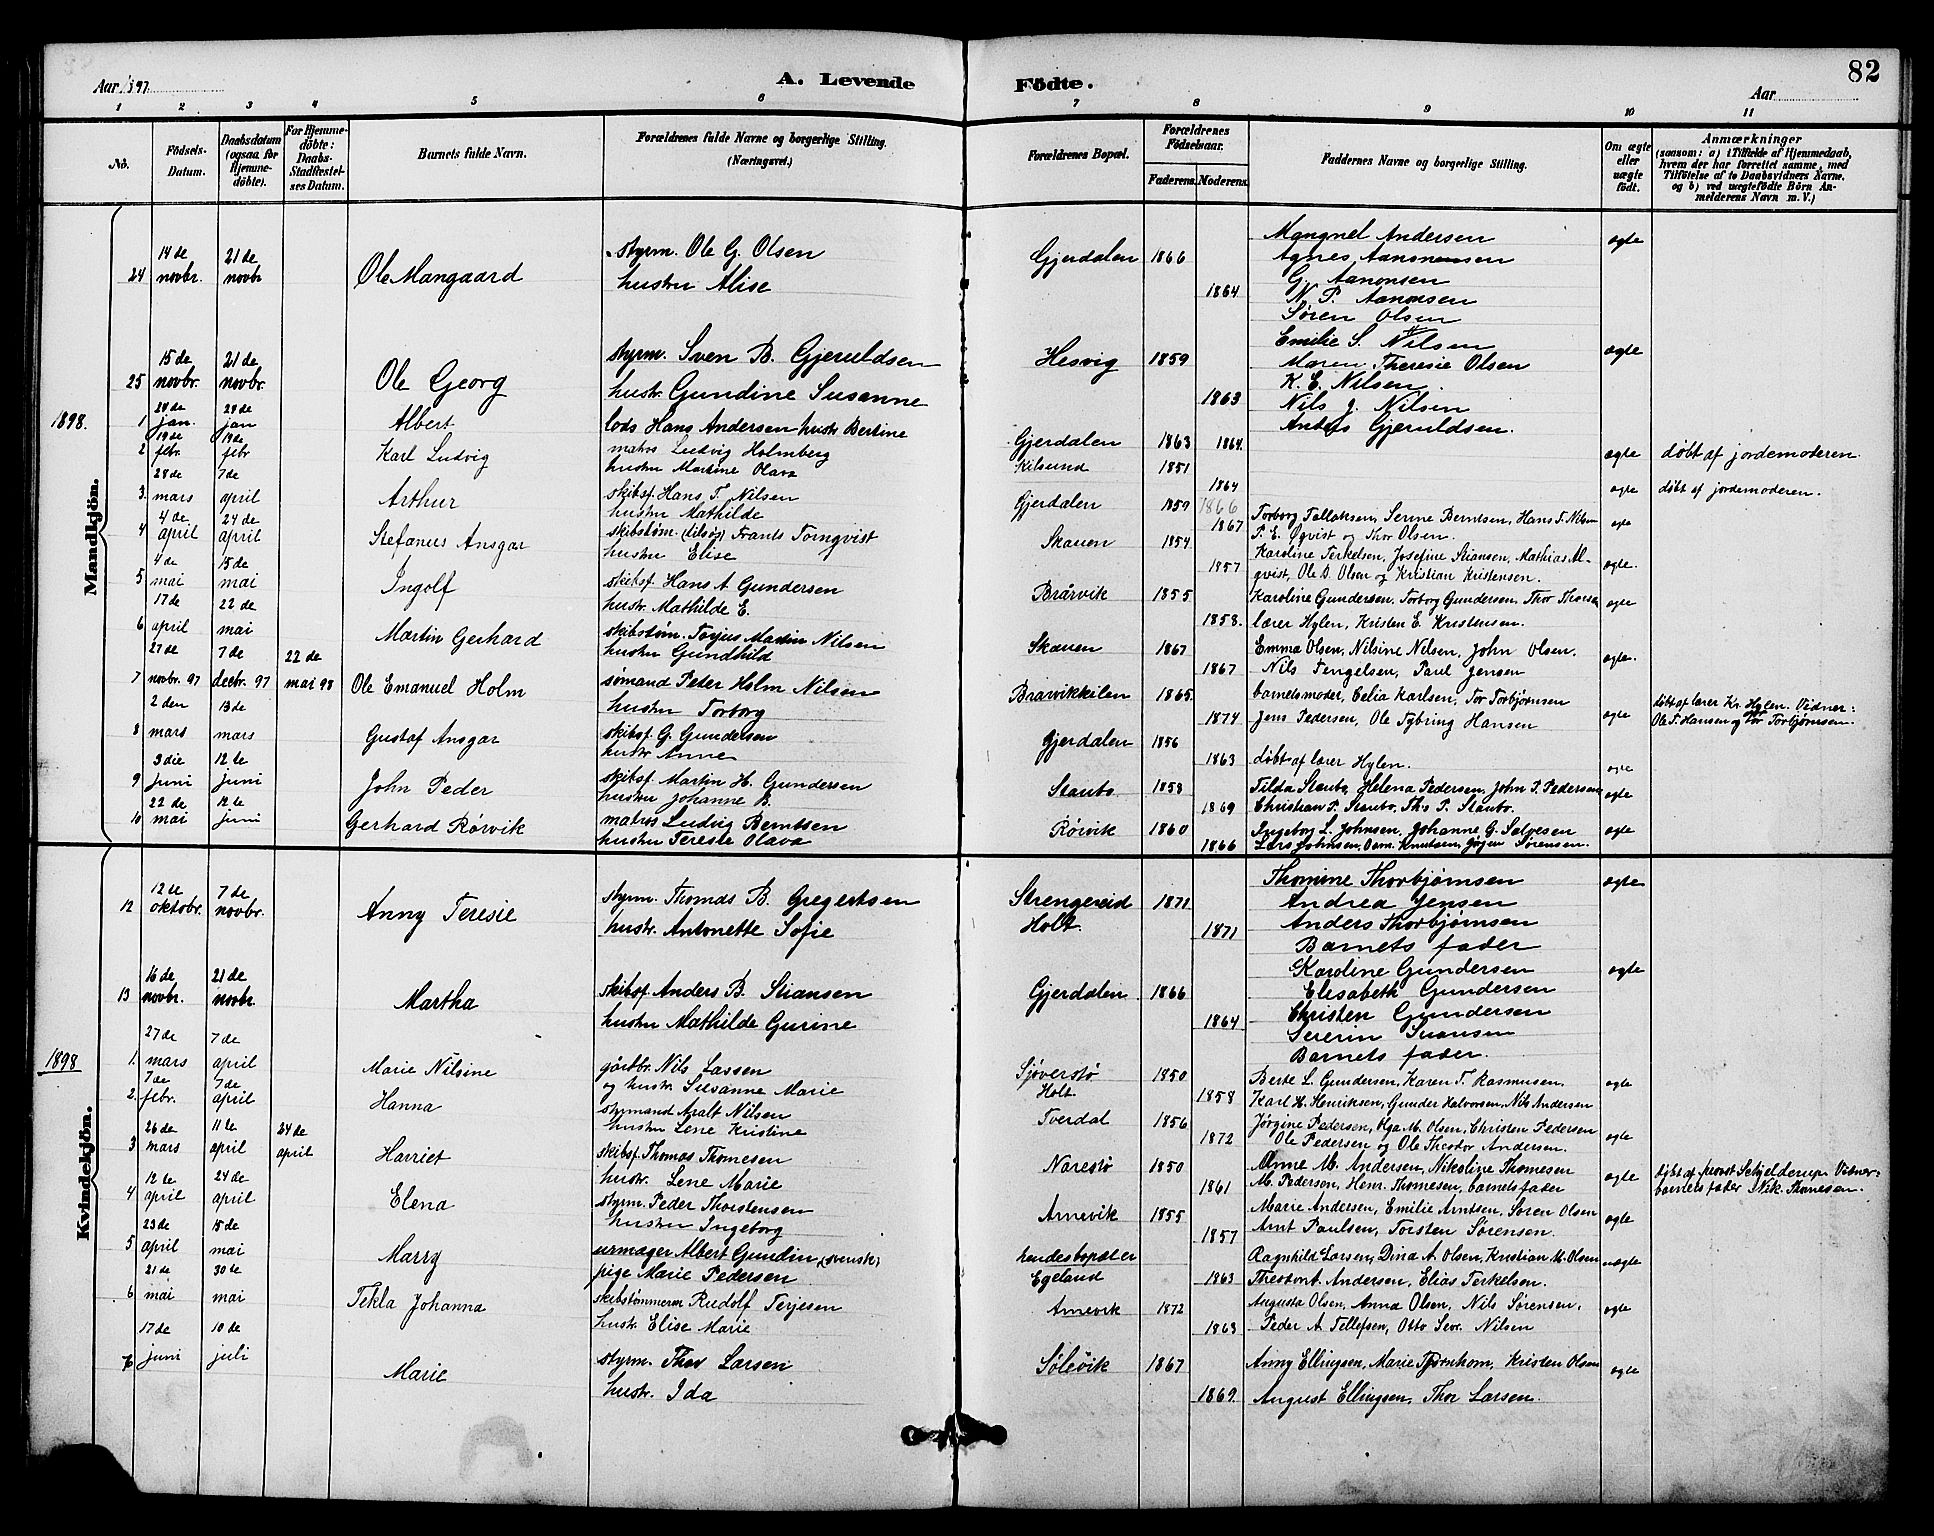 Aar 1897 A. Levende Fødte. Aar 82
1 2 3 4 5 6 7 8 9 10 11
No. Födsels-Datum. Daabsdatum (ogsaa for Hjemme-döbte). For Hjemme-döbte: Daabs-Stadfæstel-ses Datum. Barnets fulde Navn. Forældrenes fulde Navne og borgerlige Stilling. (Næringsvei.) Forældrenes Bopæl. Forældrenes Födselsaar. Faderens. Moderens. Faddernes Navne og borgerlige Stilling. Om ægte eller uægte födt. Anmærkninger (saasom: a) i Tilfælde af Hjemmedaab, hvem der har forrettet samme, med Tilföielse af to Daabsvidners Navne, og b) ved uægtefödte Börn An-melderens Navn m. V.)
Mandkjön.
24 14 de novbr. 21 de novbr Ole Mangaard styrm. Ole G. Olsen Gjerdalen 1866 Mangnel Andersen ægte
hustru Alise 1864 Agnes Aanonsen
G. Aanonsen
N. P. Aanonsen
Søren Olsen
25 15 de novbr. 21 de novbr. Ole Georg styrm. Sven B. Gjeruldsen Hesvig 1859 Emilie S. Nilsen ægte
hustr. Gundine Susanne 1863 Maren Theresie Olsen
K. E. Nilsen
Nils J. Nilsen
Anders Gjeruldsen.
1898.
1 jan. jan Albert lods Hans Andersen hustr Bertine Gjerdalen 1863 1864 ægte døbt af jordemoderen.
2 19 de febr. 19 de febr Karl Ludvig matros Ludvig Holmberg Kilsund 1851
hustru Martine Olava 1864 ægte døbt af jordemoderen.
3. 28 de mars 7 de april Arthur skibsf. Hans T. Nilsen Gjerdalen 1859 1866
hustru Mathilde 1867 Torborg Tallaksen, Serine Berntsen, Hans T. Nilsen ægte
P. E. Qvist og Thor Olsen.
4 4 de april 24 de april Stefanus Ansgar skibstøm. Frants Tornqvist Skauen 1854
hustru Elise 1857 Karoline Terkelsen, Josefine Stiansen, Mathias Al-
qvist, Ole D. Olsen og Kristian Kristensen. ægte.
5 4 de mai 15 de mai Ingolf skibsf. Hans A Gundersen Brårvik 1855 Karoline Gundersen, Torborg Gundersen, Thor Thorsen ægte
hustr. Mathilde E. 1858. lærer Hylen, Kristen E. Kristensen.
6 17 de april 22 de mai Martin Gerhard skibstøm. Torjus Martin Nilsen Skauen 1867 Emma Olsen, Nilsine Nilsen, John Olsen. ægte.
hustru Gundhild 1867 Nils Tengelsen, Paul Jensen
7 27 de novbr. 97 7 de decbr. 97 22 de mai 98 Ole Emanuel Holm sømand Peter Holm Nilsen Bravikkilen 1865 barnets moder, Celia Karlsen, Tor Torbjørnsen døbt af lærer Kr. Hylen. Vidner:
hustru Torborg 1874 Jens Pedersen, Ole Tybring Hansen ægte Ole T. Hansen og Tor Torbjørnsen.
8 2 den mars 13 de mars Gustaf Ansgar skibsf. G. Gundersen Gjerdalen 1856
hustr Anne 1863 døbt af lærer Hylen. ægte
9 3 die juni 12 te juni John Peder skibsf. Martin H. Gundersen Staubo 1858 Tilda Staubo, Helena Pedersen, John P. Pedersen ægte
hustru Johanne B. 1869 Christian P. Staubo, Ths P. Staubo.
10 22 de mai 12 te juni Gerhard Rørvik matros Ludvig Berntsen Rørvik 1860 Ingeborg L. Johnsen, Johanne G. Salvesen ægte
hustru Tereste Olava 1866 Lars Johnsen, Osm. Knutsen, Jørgen Sørensen.
Kvindekjön.
12 12 te oktobr. 7 de novbr. Anny Teresie styrm. Thomas B. Gregertsen Strengereid 1871 Thomine Thorbjørnsen ægte
hustr. Antonette Sofie Holt. 1871 Andrea Jensen
Anders Thorbjørnsen
Barnets fader
13 16 de novbr. 21 de novbr. Martha skibsf Anders B. Stiansen Gjerdalen 1866 Karoline Gundersen ægte
hustru Mathilde Gurine 1864 Elisabeth Gundersen
Christen Gundersen
Sererin Svensen
Barnets fader.
1898
1. 27 de mars 7 de april Marie Nilsine gårdbr. Nils Lassen Sjøverstø 1850 Berte L. Gundersen, Karen T. Rasmusen. ægte
og hustr. Susanne Marie Holt. 1858 Karl H. Henriksen, Gunder Halvorsen, Nils Andersen
2. 7 de febr. 7 de april Hanna styrmand Aralt Nilsen Tverdal 1856 Jørgine Pedersen, Olga M. Olsen, Christen Pedersen ægte
hustru Lene Kristine 1872 Ole Pedersen og Ole Theodor Andersen.
3 26 de mars 11 te april 24 de april Harriet skibsf. Thomas Thomesen Narestø 1850 Anne M. Andersen, Nikoline Thomesen ægte døbt af provst Schjelderup. Vidner:
hustr. Lene Marie 1861 M. Pedersen, Henr. Thomesen, barnets fader barnets fader Nik. Thomesen.
4 12 te april 24 de april Elena styrm. Peder Thorstensen Arnevik 1855 Marie Andersen, Emilie Arntsen, Søren Olsen ægte
hustru Ingeborg 1857 Arnt Paulsen, Torsten Sørensen.
5 23 de april 15 de mai Marry urmager Albert Gundin, (svensk) hendes bopæl er Ragnhild Larsen, Dina A. Olsen, Kristian M. Olsen uægte
pige Marie Pedersen Egeland 1863 Theodor A. Andersen, Elias Terkelsen.
6 21 de mai 30 te mai Tekla Johanna skibstømmerm Rudolf Terjesen Arnevik 1872 Augusta Olsen, Anna Olsen, Nils Sørensen, ægte
hustr. Elise Marie 1863 Peder A Tellefsen, Otto Sev. Nilsen
7 17 de juni 10 de juli Marie styrm. Thor Larsen Sølevik 1867 Anny Ellingsen, Marie Tjørnhom, Kristen Olsen ægte
hustr. Ida 1869. August Ellingsen, Thor Larsen.